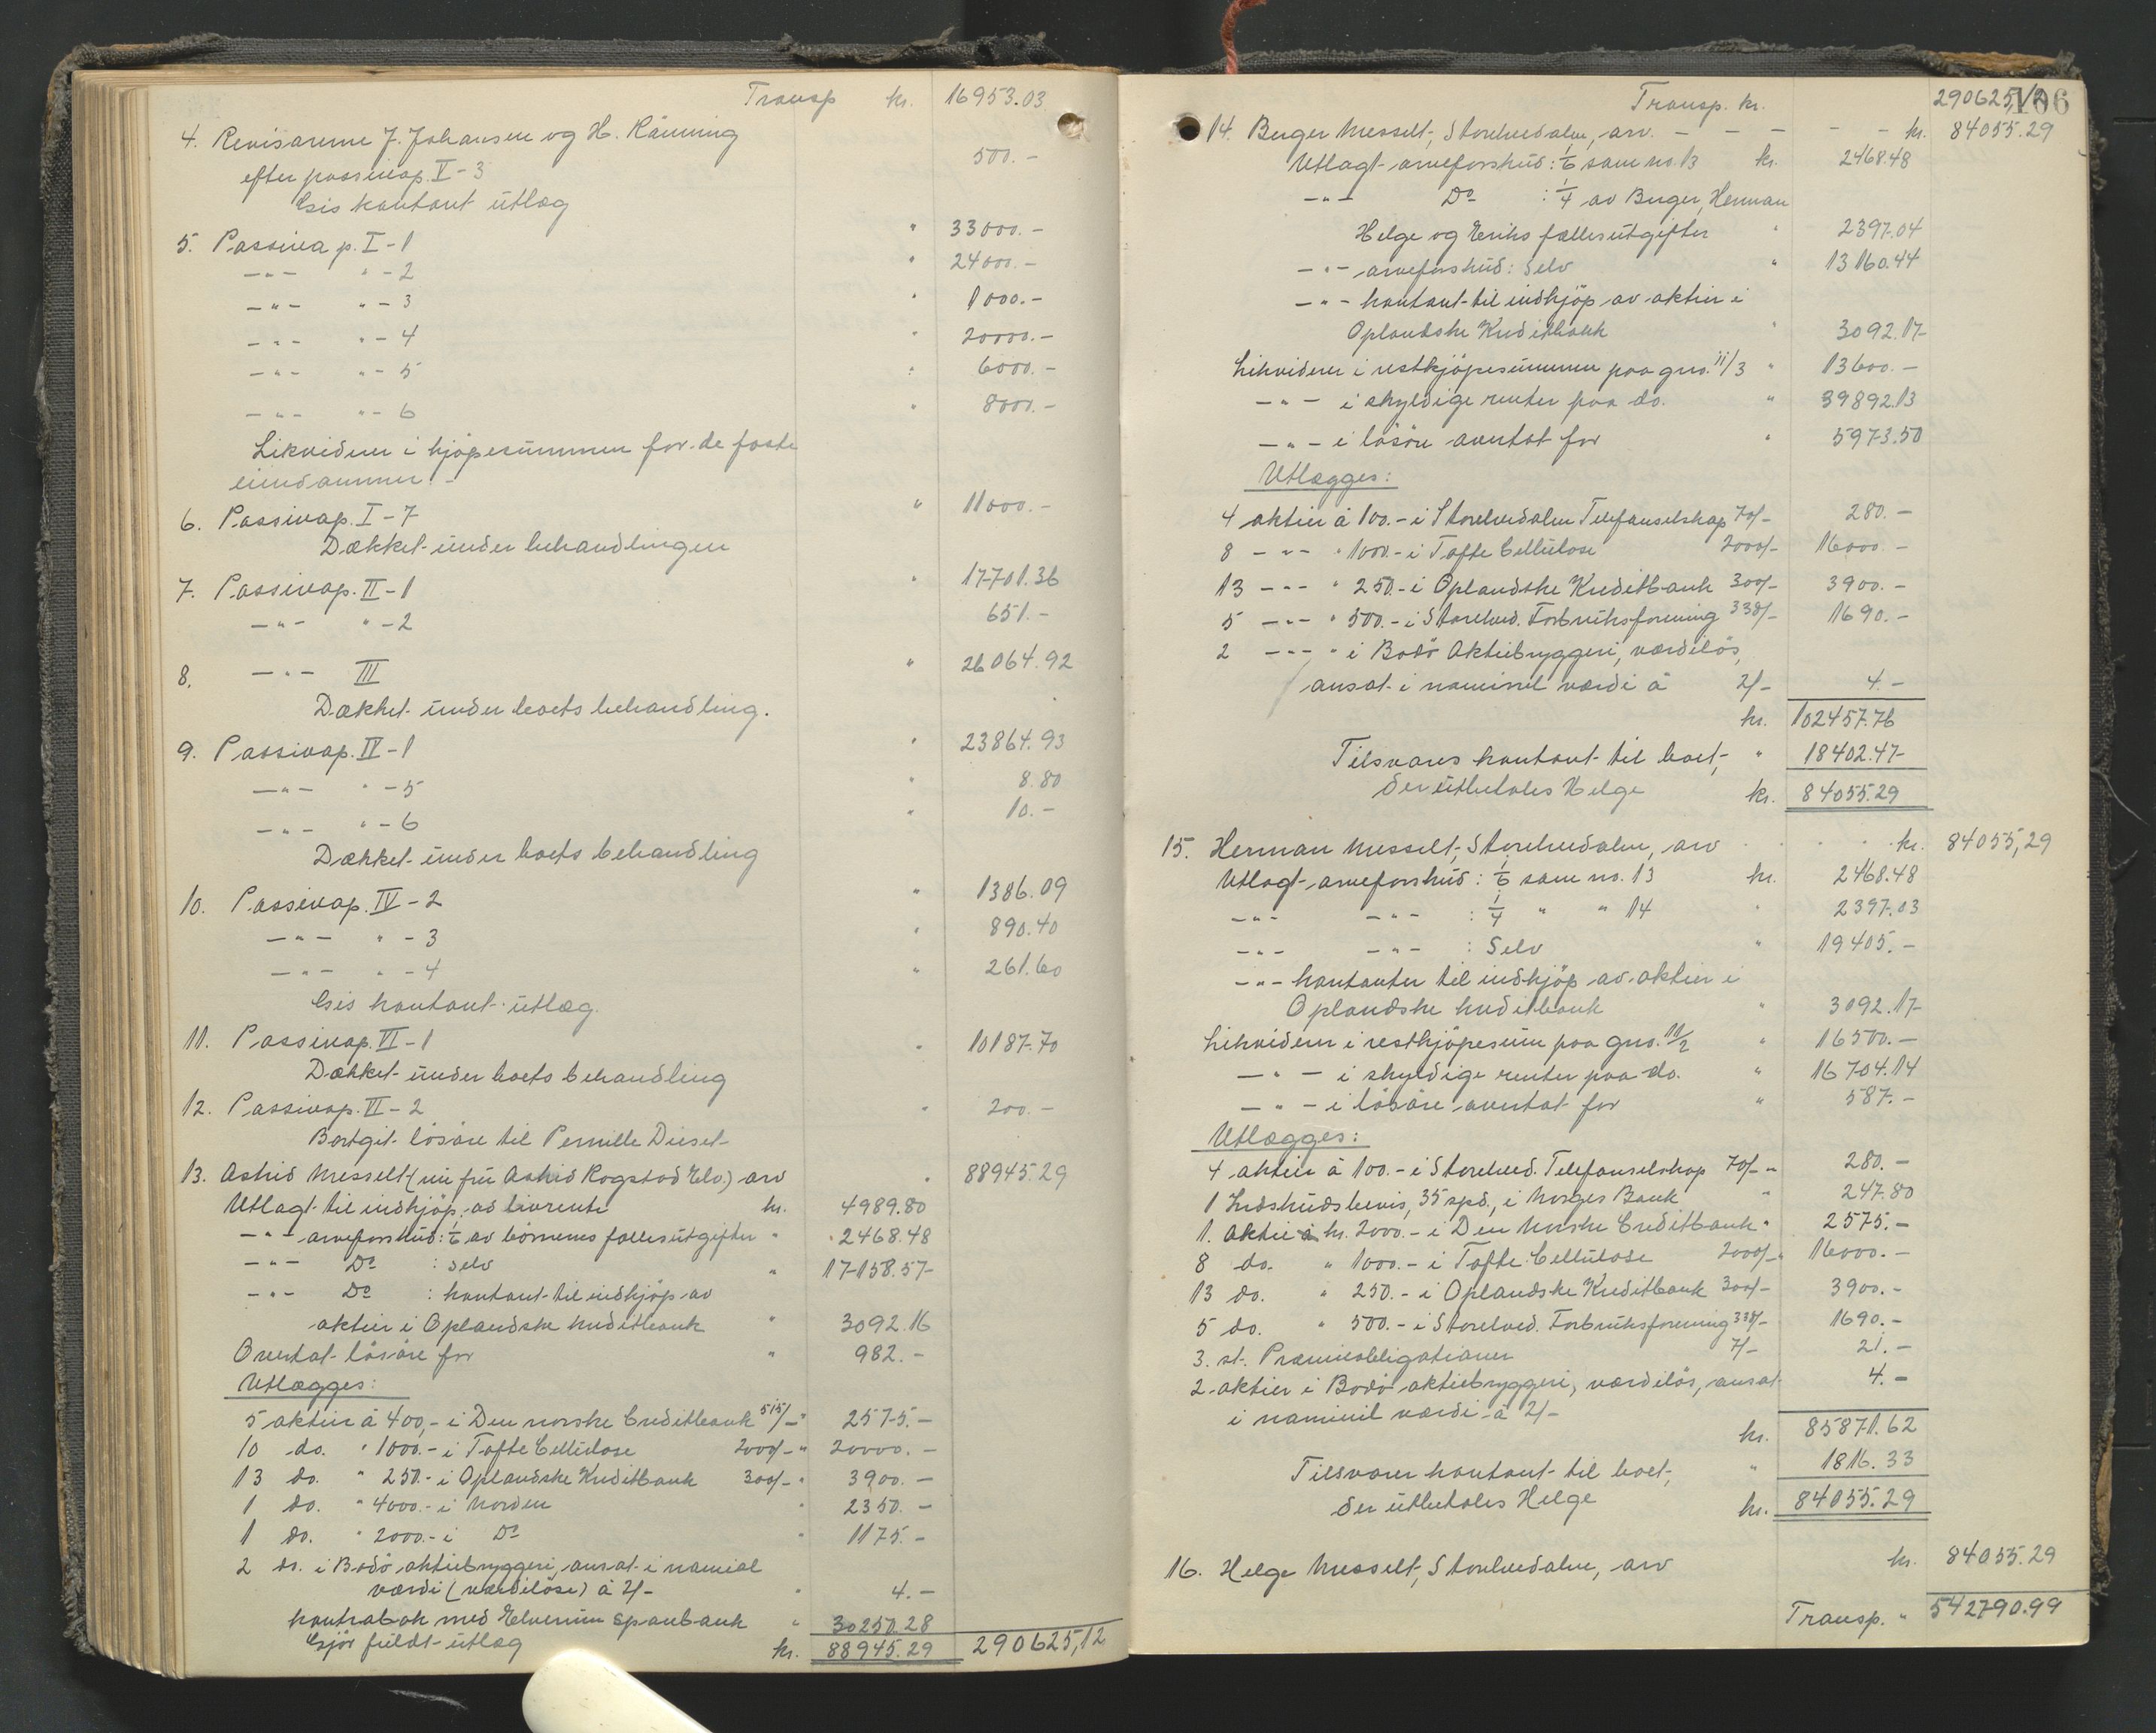 Transp kr. 16953.03
4. Revisorerne J. Johansen og H. Rånning
efter passivap. V-3 500.-
Gis kontant utlæg
5. Passiva p. I-1 " 33000.-
-"- " -2 " 24000.-
-"- " -3 " 1000.-
-"- " -4 " 20000.-
-"- " -5 " 6000.-
-"- " -6 " 8000.-
Likviderer i kjøpesummen for de faste
eiendommer.-
6. Passivap. I-7 " 11000.-
Dækket under behandlingen
7. Passivap. II-1 " 17701.36
-"- " -2 651.-
8. -"- III " 26064.92
Dækket under boets behandling.
9. Passivap. IV-1 " 23864.93
-"- " -5 " 8.80
-"- " -6 " 10.-
Dækket under boets behandling
10. Passivap. IV-2 " 1386.09
-"- " -3 " 890.40
-"- " -4 " 261.60
Gis kontant utlæg.
11. Passivap. VI-1 " 10187.70
Dækket under boets behandling
12. Passivap. VI-2 " 200.-
Bortgit løsøre til Pernille Diset
13. Astrid Messelt (nu fru Astrid Rogstad Elv.) arv " 88945.29
Utlagt til indkjøp av livrente kr. 4989.80
-"- arveforskud: 1/6 av børnenes fællesutgifter " 2468.48
-"- Do : selv " 17158.57
-"- Do : kontant til indkjøp av
aktier i Oplandske Kreditbank " 3092.16
Overtat løsøre for " 982.-
Utlægges:
5 aktier à 400,- i Den norske Creditbank 515/- " 2575.-
10 do. " 1000.- i Tofte Cellulose 2000/- " 20000.-
13 do. " 250.- i Oplandske Kreditbank 300/- " 3900.-
1 do. " 4000.- i Norden " 2350.-
1 do. " 2000.- i Do " 1175.-
2 do. i Bodø aktiebryggeri, ansat i nominel
værdi (værdiløse) à 2/- " 4.-
kontrabok med Elverum Sparebank " 30250.28
Gjør fuldt utlæg kr. 88945.29 290625,12
106
Transp. kr. 290625,12
14. Birger Messelt, Storelvedalen, arv. - - - - - kr. 84055.29
Utlagt arveforskud: 1/6 som no. 13 kr. 2468.48
-"- Do : 1/4 av Birger, Herman
Helge og Eriks fællesutgifter " 2397.04
-"- arveforskud: Selv " 13160.44
-"- kontant til indkjøp av aktier i
Oplandske Kreditbank " 3092.17
Likviderer i restkjøpesummen paa gno. 11/3 " 13600.-
-"- i skyldige renter paa do. " 39892.13
-"- i løsøre overtat for " 5973.50
Utlægges:
4 aktier à 100.- i Storelvedalen Telefonselskap 70/- 280.-
8 -"- " 1000.- i Tofte Cellulose 2000/- 16000.-
13 -"- " 250.- i Oplandske Kreditbank 300/- 3900.-
5 -"- " 500.- i Storelved. Forbruksforening 338/- 1690.-
2 -"- " i Bodø Aktiebryggeri, værdiløs,
ansat i nominel værdi à 2/- 4.-
kr. 102457.76
Tilsvares kontant til boet, " 18402.47
der utbetales Helge kr. 84055.29
15. Herman Messelt, Storelvedalen, arv . . . . kr. 84055,29
Utlagt arveforskud: 1/6 som no. 13 kr. 2468.48
-"- -"- : 1/4 " " 14 " 2397.03
-"- -"- : Selv " 19405.-
-"- kontanter til indkjøp av aktier i
Oplandske Kreditbank " 3092.17
Likviderer i restkjøpesum paa gno. 11/2 " 16500.-
-"- i skyldige renter paa do. " 16704.14
-"- i løsøre overtat for " 587.-
Utlægges:
4 aktier à 100.- i Storelved. Telefonselskap 70/- " 280.-
1 Indskudsbevis, 35 spd., i Norges Bank " 247.80
1. aktie à kr. 2000.- i Den Norske Creditbank " 2575.-
8 do. " 1000.- i Tofte Cellulose 2000/- " 16000.-
13 do. " 250.- i Oplandske Kreditbank 300/- 3900.-
5 do. " 500.- i Storelved. Forbruksforening 338/- 1690.-
3. st. Præmieobligationer 7/- 21.-
2 aktier i Bodø aktiebryggeri, værdiløs, ansat 4.-
i nominel værdi à 2/-
kr. 85871.62
Tilsvarer kontant til boet, " 1816.33
der utbetales Helge kr. 84055.29
16. Helge Messelt, Storelvedalen, arv kr. 84055.29
Transp. " 542790.99